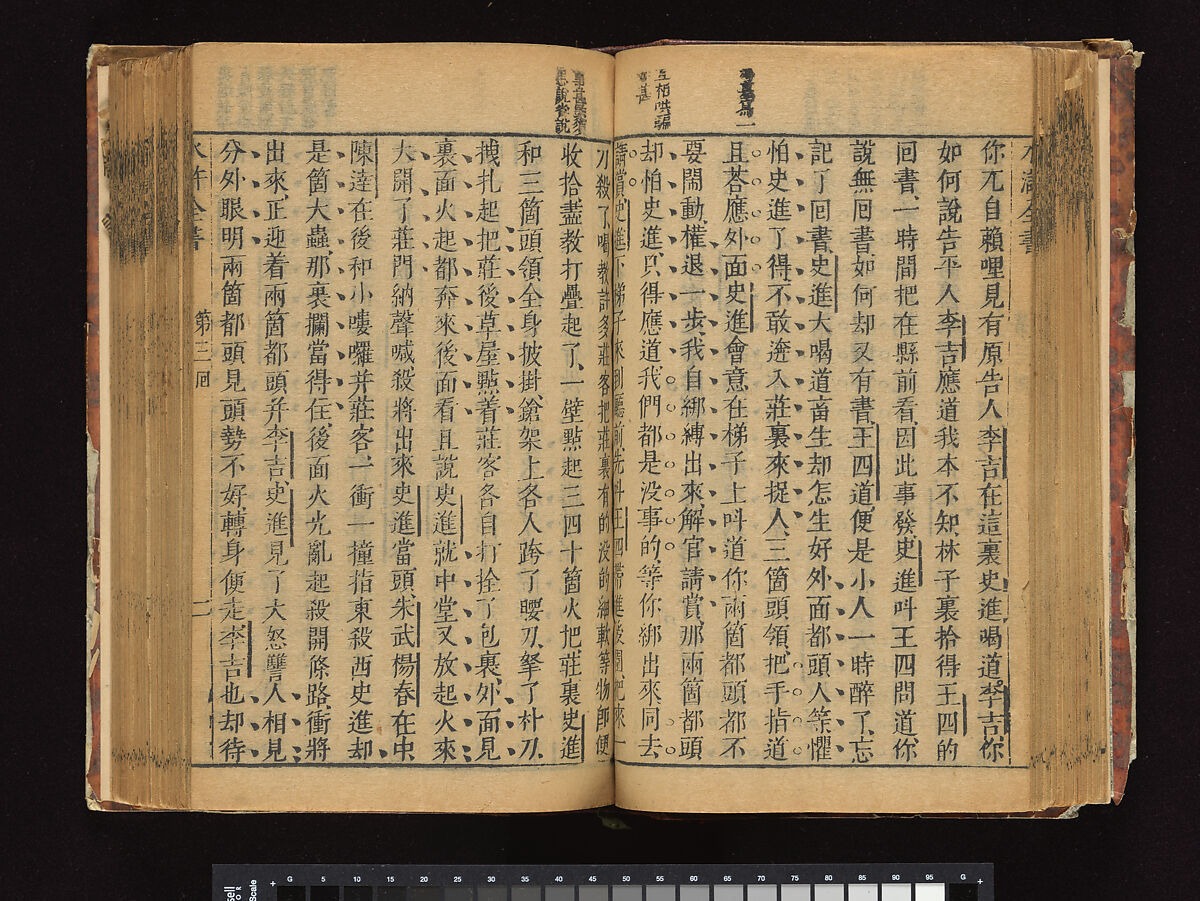 水滸全書
你兀自賴哩見有原告人李吉在這裏史進喝道李吉你
如何說告平人李吉應道我本不知林子裏拾得王四的
回書一時間把在縣前看因此事發史進叫王四問道你
說無回書如何却又有書王四道便是小人一時醉了忘
記了回書史進大喝道畜生却怎生好外面都頭人等懼
怕史進了得不敢遶入莊裏來捉人三箇頭領把手指道
且荅應外面史進會意在梯子上叫道你兩箇都頭都不
要閙動權退一步我自綁縛出來解官請賞那兩箇都頭
却怕史進只得應道我們都是没事的等你綁出來同去
請賞史進下梯子來到廳前先叫王四帶進後園把來一
刀殺了喝教許多莊客把莊裏有的没的細軟等物即便
收拾盡教打疊起了一壁點起三四十箇火把莊裏史進
和三箇頭領全身披掛鎗架上各人跨了腰刀拏了朴刀
拽扎起把莊後草屋點着莊客各自打拴了包裹外面見
裏面火起都奔來後面看且說史進就中堂又放起火來
大開了莊門納聲喊殺將出來史進當頭朱武楊春在中
陳達在後和小嘍囉并莊客一衝一撞指東殺西史進却
是箇大蟲那裏攔當得住後面火光亂起殺開條路衝將
出來正迎着兩箇都頭并李吉史進見了大怒讐人相見
分外眼明兩箇都頭見頭勢不好轉身便走李吉也却待
水滸全書 第三回 二
G 5 10 15 20 25 30 35 40 45 50 55 60 65 70 75 80 85 90 95 G
Scale